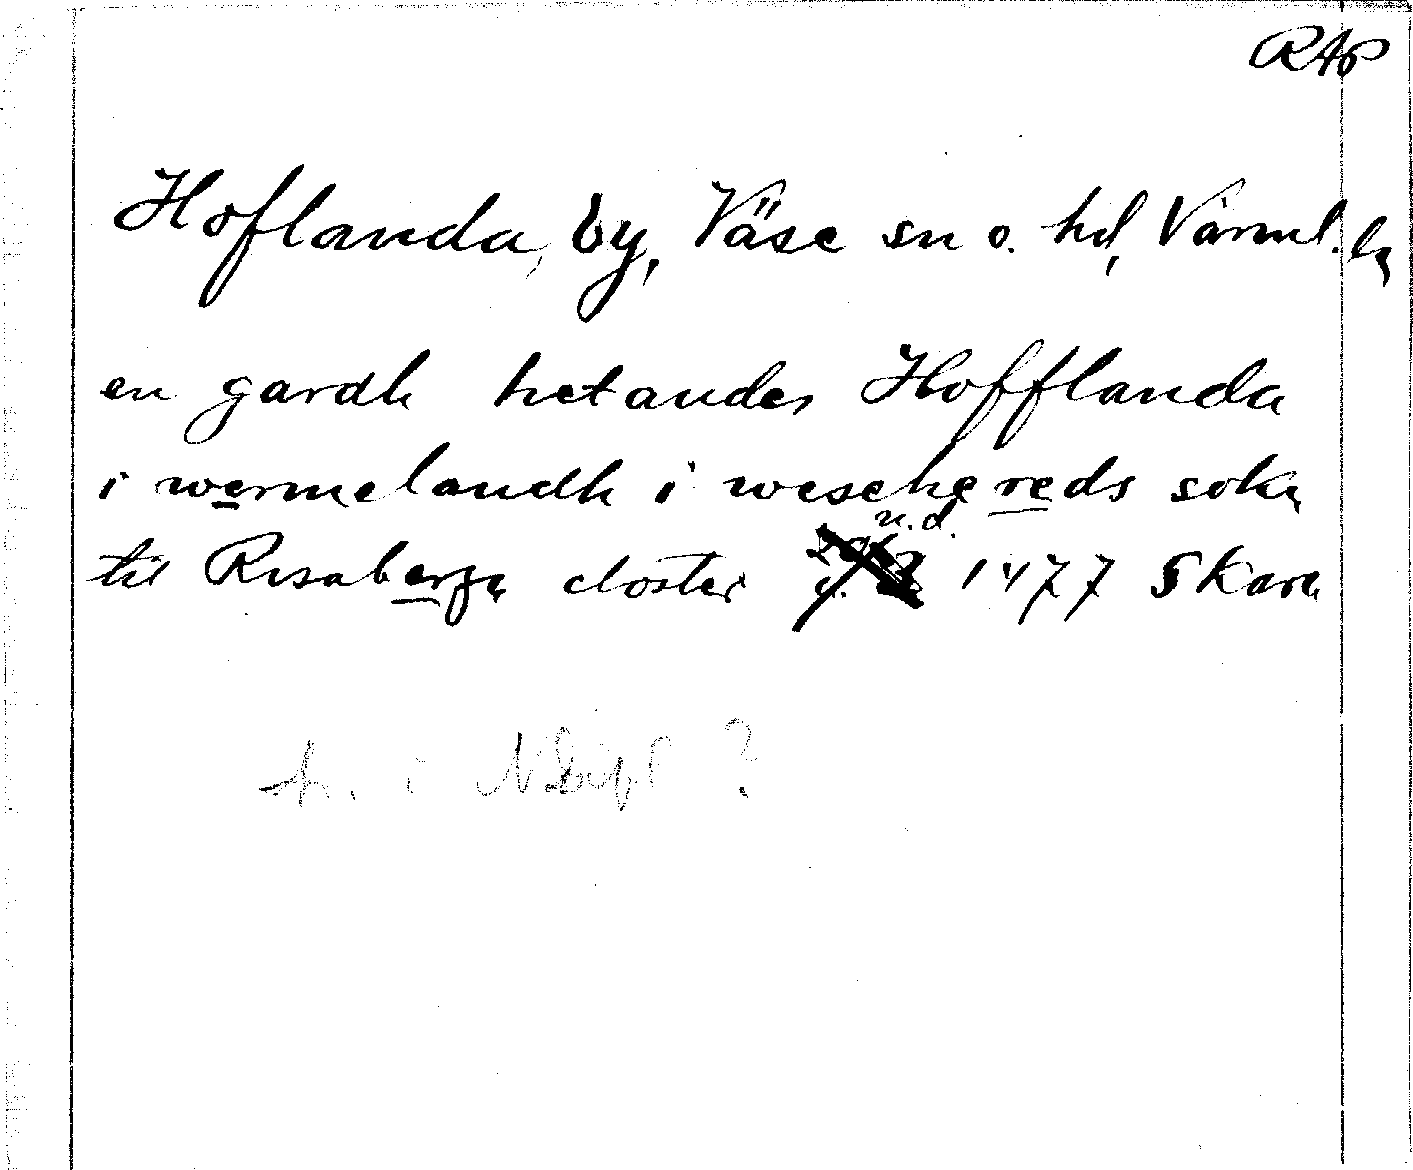 RAP
Hoflanda, by, Väse sn o. hd, Värml. l.
en gardh hetandes Hofflanda
i wermelandh i wesehereds sokn
til Risaberga closter u.d. 1477 Skara
tr. i NDipl ?